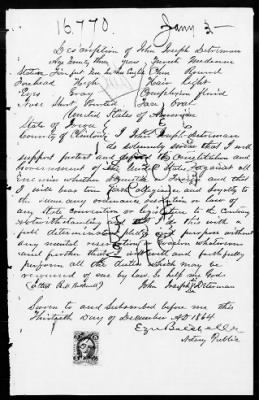 16.770. Jany 3
Description of John Joseph Determan
Age twenty three years
Stature five feet Chin Round
Forehead High Hair Light
Eyes Gray Complexion fluid
Nose Short Pointed Face Oval
United States of Amerique
State of Iowa
County of Clinton I John Joseph Determan
do solemnly swear that I will
support protect and defend the Constitution and
Government of the United States against all
enemies whether Domestic or Foreign and that
I will bear true faith allegiance and loyalty to
the same any ordinance resolution or law of
any State Convention or Legislature to the Contrary
Notwithstanding and I do this with a
full determination pledge and purpose without
any mental reservation or evasion whatsoever
and further that I will well and faithfully
perform all the duties which may be
required of me by law. So help me God
John Joseph Determan
Sworn to and Subscribed before me this
Thirtieth Day of December AD 1864
Notary Public